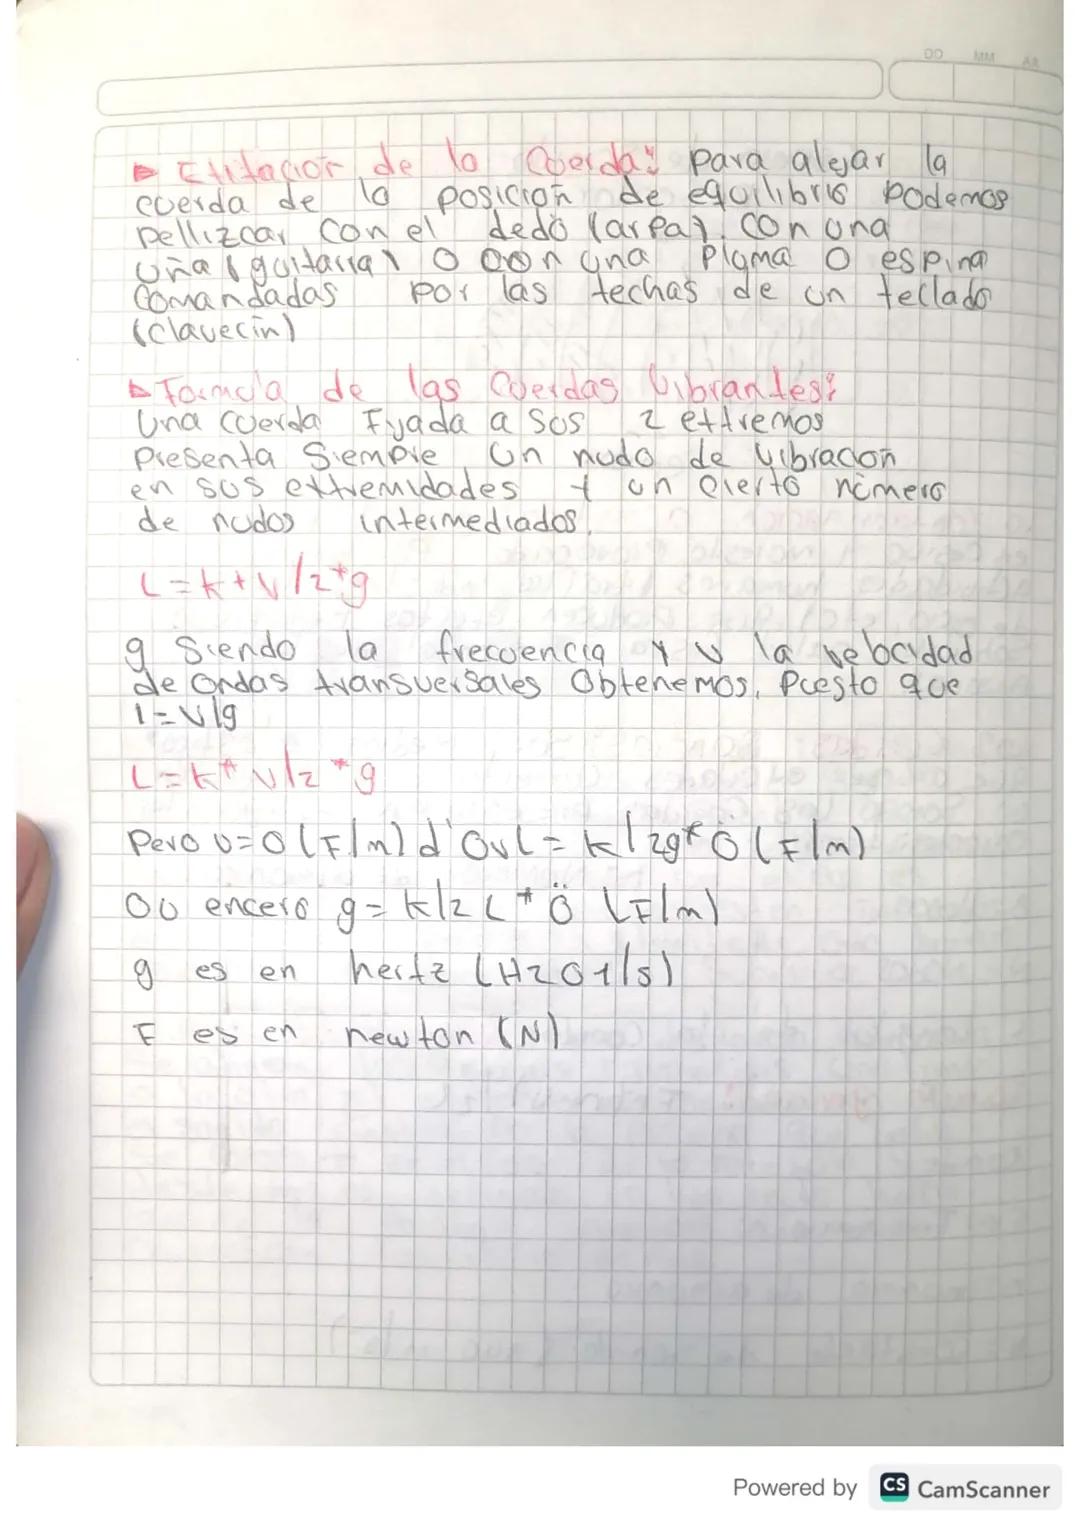 DD MM AA
▷ Exitacion de la Cuerda: para alejar la
cuerda de la posicion de equilibrio podemos
pellizcar con el dedo (arpa), con una
uña (guitarra) o con una pluma o espina
comandadas por las techas de un teclado
(clavecin)
▷ Formula de las Cuerdas Vibrantes:
Una cuerda Fijada a sus 2 extremos
presenta Siempre un nudo de vibracion
en sus extremidades + un cierto número
de nudos intermediados.
L=k+v/2*g
g Siendo la frecuencia y v la velocidad
de ondas transversales Obtenemos, puesto que
l=v/g
L=k*v/2*g
Pero v=O(F/m) d'OuL=k/2g*Ö(F/m)
Ou encero g=k/2L*Ö (F/m)
g es en hertz (HzO1/s)
F es en newton (N)
Powered by CS CamScanner